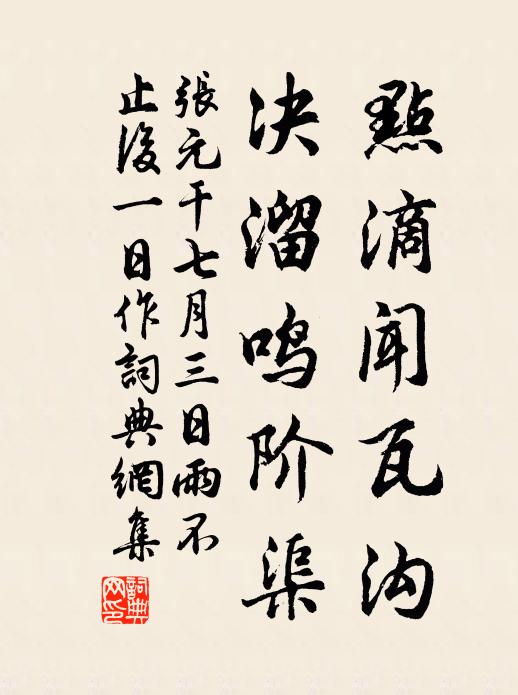 點滴闻瓦沟
决溜鸣阶渠
張元干七月三日雨不
止後一日作詞典網集
詞典网印